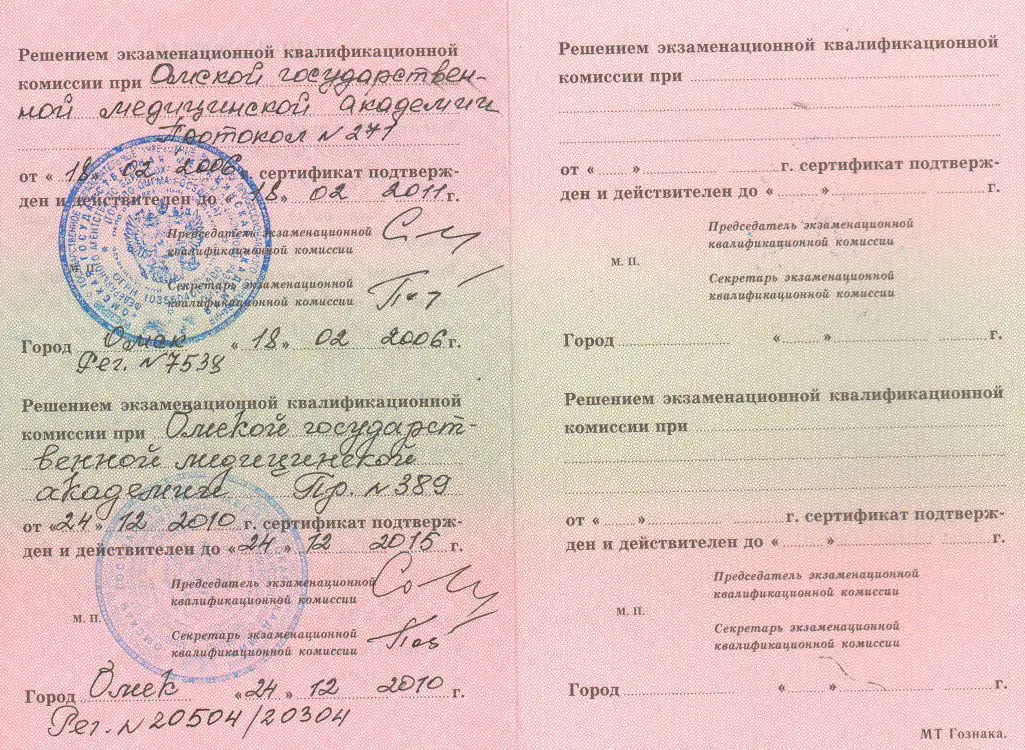 Решением экзаменационной квалификационной
комиссии при Омской государствен-
ной медицинской академии
Протокол № 271
от « 18 » 02 2006 г. сертификат подтверж-
ден и действителен до « 18 » 02 2011 г.
Председатель экзаменационной
квалификационной комиссии
М. П.
Секретарь экзаменационной
квалификационной комиссии
Город Омск « 18 » 02 2006 г.
Рег. № 7538
Решением экзаменационной квалификационной
комиссии при Омской государст-
венной медицинской
академии Пр. № 389
от « 24 » 12 2010 г. сертификат подтверж-
ден и действителен до « 24 » 12 2015 г.
Председатель экзаменационной
квалификационной комиссии
М. П.
Секретарь экзаменационной
квалификационной комиссии
Город Омск « 24 » 12 2010 г.
Рег. № 20504/20304
Решением экзаменационной квалификационной
комиссии при
от « » г. сертификат подтверж-
ден и действителен до « » г.
Председатель экзаменационной
квалификационной комиссии
М. П.
Секретарь экзаменационной
квалификационной комиссии
Город « » г.
Решением экзаменационной квалификационной
комиссии при
от « » г. сертификат подтверж-
ден и действителен до « » г.
Председатель экзаменационной
квалификационной комиссии
М. П.
Секретарь экзаменационной
квалификационной комиссии
Город « » г.
МТ Гознака.